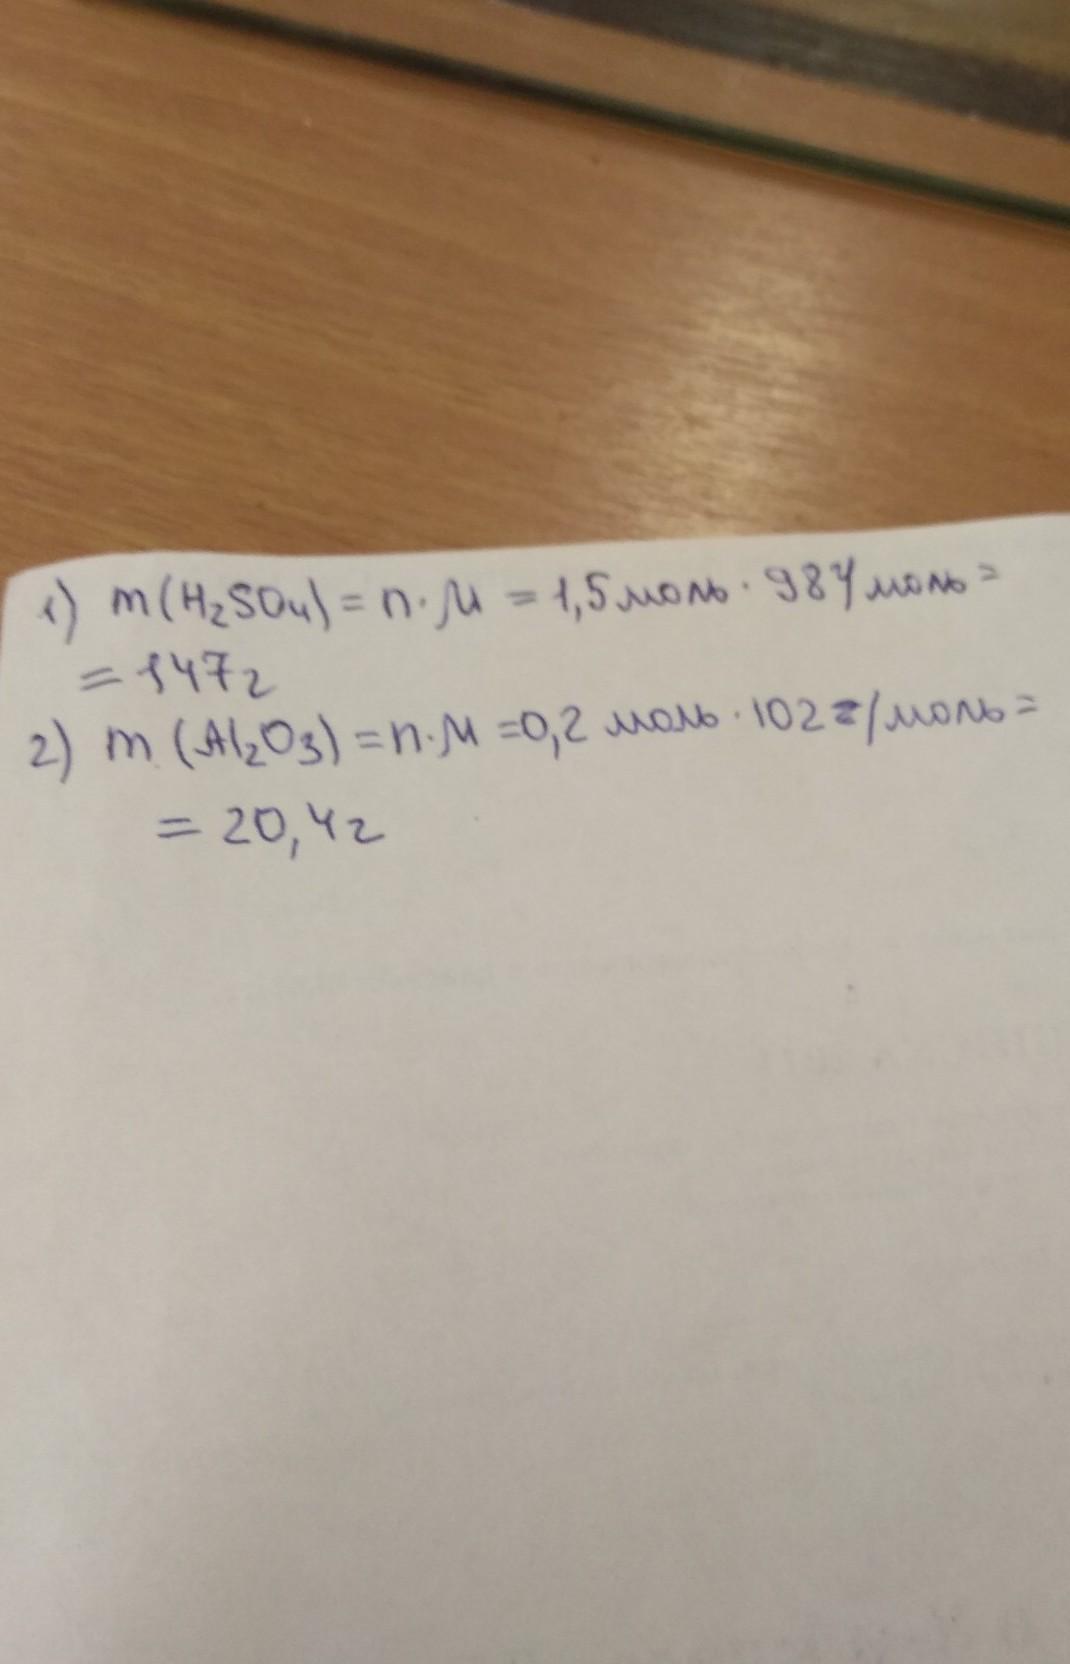 1) m(H₂SO₄) = n·M = 1,5 моль · 98 г/моль =
= 147 г
2) m (Al₂O₃) = n·M = 0,2 моль · 102 г/моль =
= 20,4 г